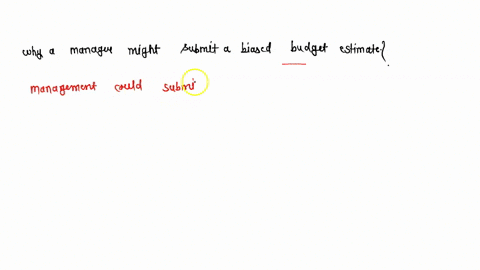 why a manager might submit a biased budget estimate{.
management could submi